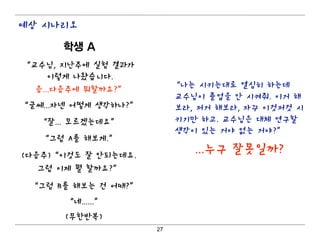 예상 시나리오
학생 A
“교수님, 지난주에 실험 결과가
이렇게 나왔습니다.
음...다음주에 뭐할까요?”
“글쎄...자넨 어떻게 생각하나?”
“잘... 모르겠는데요”
“그럼 A를 해보게.”
(다음주) “이것도 잘 안되는데요.
그럼 이제 뭘 할까요?”
“그럼 B를 해보는 건 어때?”
“네......”
(무한반복)
“나는 시키는대로 열심히 하는데
교수님이 졸업을 안 시켜줘. 이거 해
보라, 저거 해보라, 자꾸 이것저것 시
키기만 하고. 교수님은 대체 연구할
생각이 있는 거야 없는 거야?”
...누구 잘못일까?
27